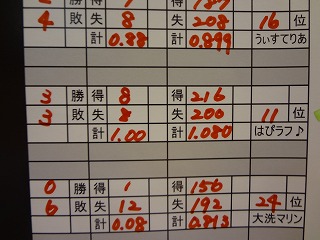 4 敗 失 8 失 208 16 位
計 0.88 計 0.899 うぃすてりあ
3 勝 得 8 得 216
3 敗 失 8 失 200 11 位
計 1.00 計 1.080 はぴラフ♪
0 勝 得 1 得 156
6 敗 失 12 失 192 24 位
計 0.08 計 0.813 大洗マリン